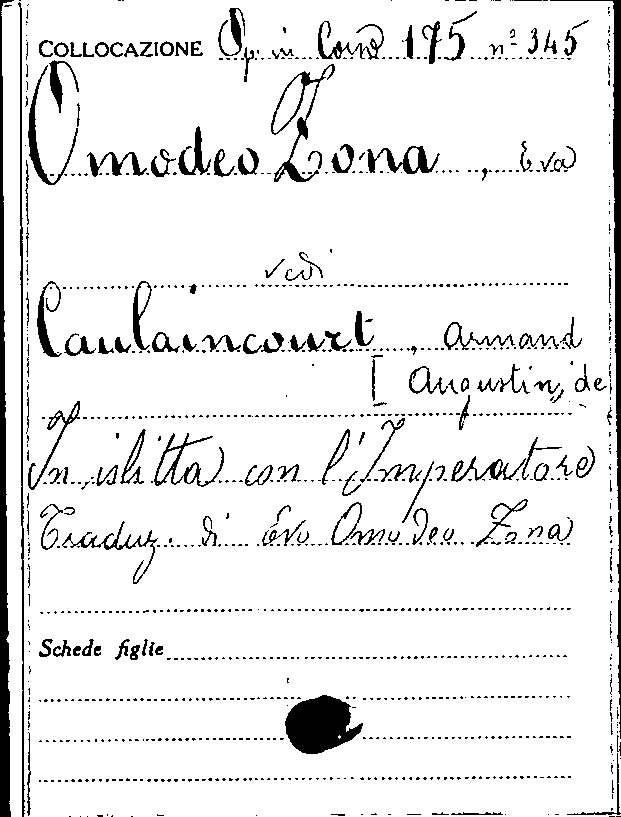 COLLOCAZIONE Op. in Cons 175 nº 345
Omodeo Zona, Eva
vedi
Caulaincourt, Armand
[Augustin, de
In islitta con l'Imperatore
Traduz. di Eva Omodeo Zona
Schede figlie